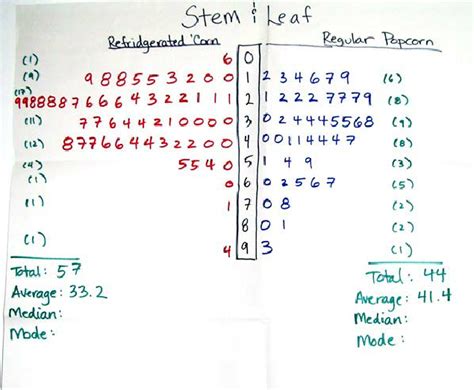 Stem & Leaf
Refridgerated Corn Regular Popcorn
(1) 6 0
(9) 9 8 8 5 5 3 2 0 0 1 2 3 4 6 7 9 (6)
(17) 9 9 8 8 8 8 7 6 6 6 4 3 2 2 1 1 1 2 1 2 2 2 7 7 7 9 (8)
(11) 7 7 6 4 4 2 1 0 0 0 0 3 0 2 4 4 4 5 5 6 8 (9)
(12) 8 7 7 6 6 4 4 3 2 2 0 0 4 0 0 1 1 4 4 4 7 (8)
(4) 5 5 4 0 5 1 4 9 (3)
(1) 0 6 0 2 5 6 7 (5)
(1) 1 7 0 8 (2)
8 0 1 (2)
(1) 4 9 3 (1)
Total: 57
Average: 33.2
Median:
Mode:
Total: 44
Average: 41.4
Median:
Mode: